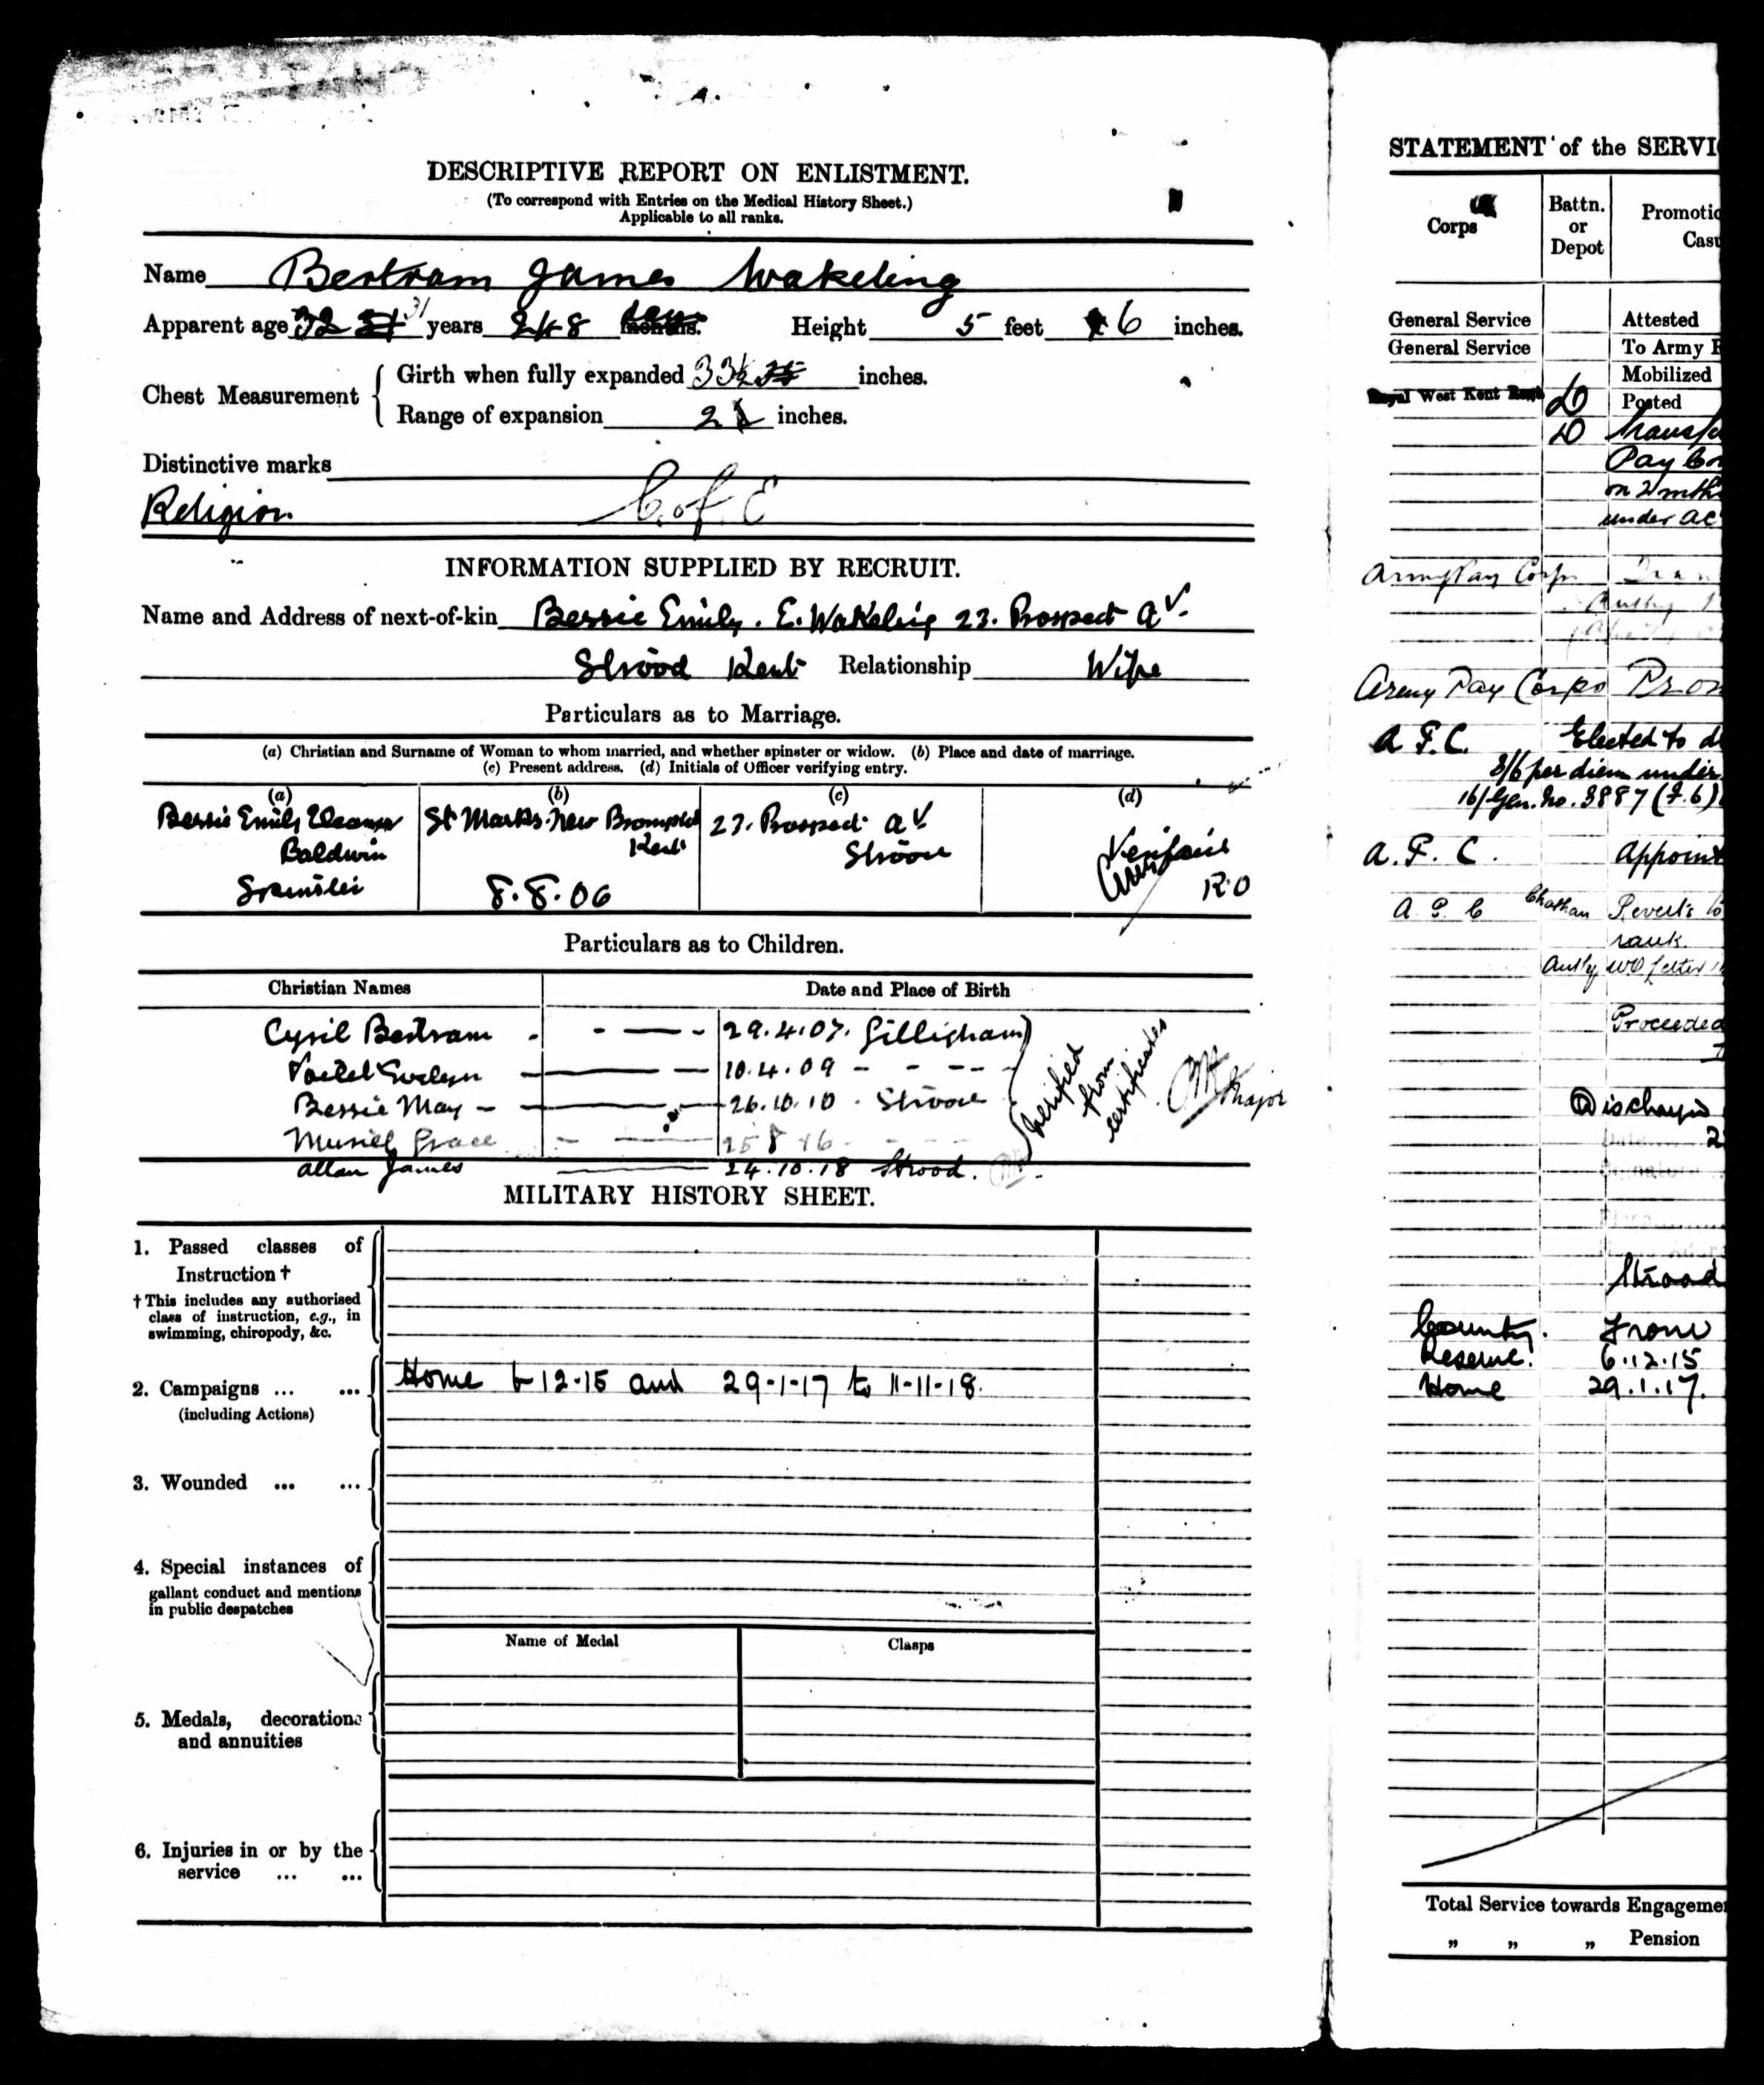 DESCRIPTIVE REPORT ON ENLISTMENT.
(To correspond with Entries on the Medical History Sheet.)
Applicable to all ranks.
Name Bertram James Wakeling
Apparent age 32 31 years 248 days months. Height 5 feet 6 inches.
Chest Measurement
Girth when fully expanded 33½ 35 inches.
Range of expansion 2 inches.
Distinctive marks
Religion C. of E
INFORMATION SUPPLIED BY RECRUIT.
Name and Address of next-of-kin Bessie Emily. E. Wakeling 23. Prospect Av.
Strood Kent Relationship Wife
Particulars as to Marriage.
(a) Christian and Surname of Woman to whom married, and whether spinster or widow. (b) Place and date of marriage.
(c) Present address. (d) Initials of Officer verifying entry.
(a) (b) (c) (d)
Bessie Emily Eleanor St Marks New Brompton 23. Prospect Av
Baldwin Kent Strood
Spinster 8.8.06 R.O
Particulars as to Children.
Christian Names Date and Place of Birth
Cyril Bertram 29.4.07. Gillingham
Evelyn 10.4.09
Bessie May 26.10.10 Strood
Muriel Grace 25 8 16
Allan James 24.10.18 Strood.
Verified from certificates
Major
MILITARY HISTORY SHEET.
1. Passed classes of
Instruction †
† This includes any authorised
class of instruction, e.g., in
swimming, chiropody, &c.
2. Campaigns ... ... Home 6-12-15 and 29-1-17 to 11-11-18.
(including Actions)
3. Wounded ... ...
4. Special instances of
gallant conduct and mentions
in public despatches
Name of Medal Clasps
5. Medals, decorations
and annuities
6. Injuries in or by the
service ... ...
STATEMENT of the SERVI
Corps Battn. or Depot Promotio
Casu
General Service Attested
General Service To Army R
Mobilized
Royal West Kent Regt D Posted
D Transfe
Pay Co
on 2 mths
under AC
Army Pay Corps Tran
Authy
Army Pay Corps Prom
A.P.C. Elected to d
3/6 per diem under
16/Gen. No. 3887 (F.6)
A.P.C. Appoint
A P C Chatham Reverts to
rank.
Authy WO letter
Proceeded
Discharged
2
Strood
County. From
Reserve. 6.12.15
Home 29.1.17.
Total Service towards Engageme
" " " Pension